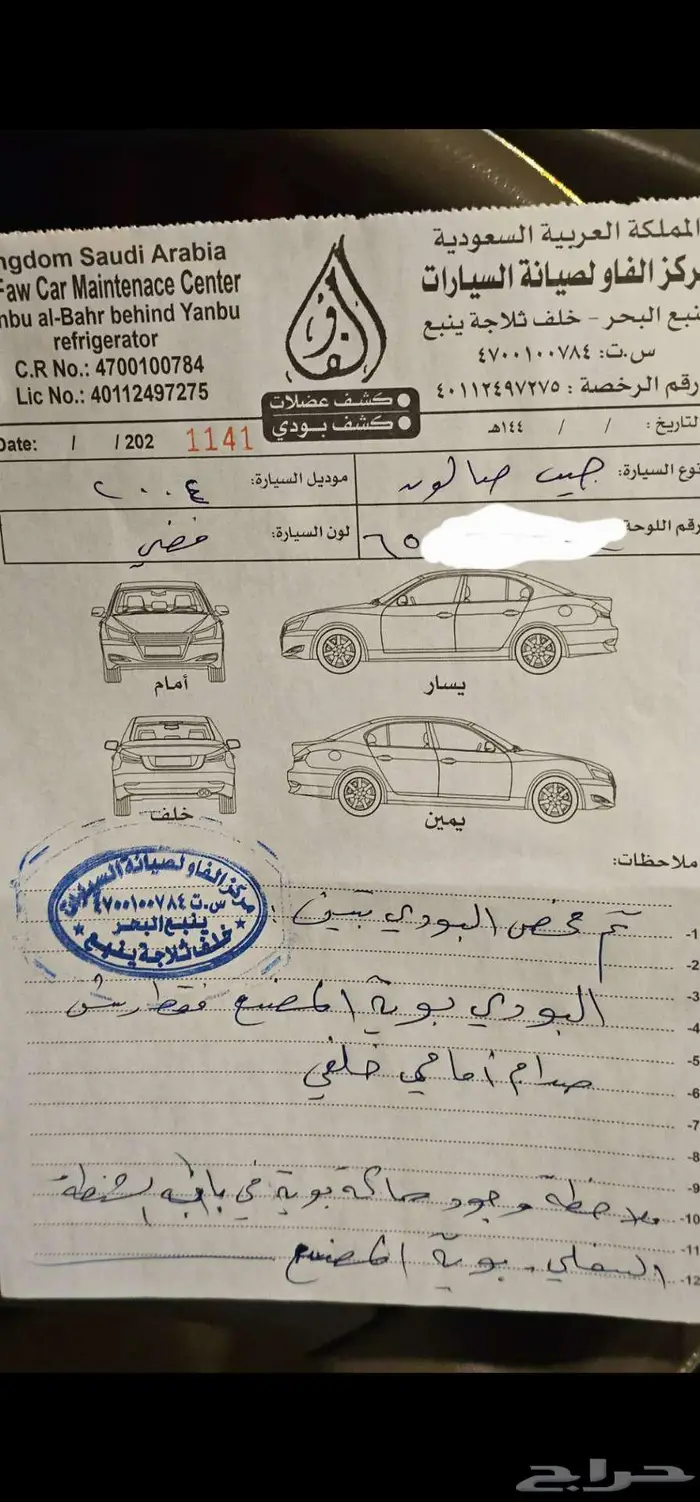 ngdom Saudi Arabia
Faw Car Maintenace Center
nbu al-Bahr behind Yanbu
refrigerator
C.R No.: 4700100784
Lic No.: 40112497275
المملكة العربية السعودية
ركز الفاو لصيانة السيارات
نبع البحر - خلف ثلاجة ينبع
س.ت: ٤٧٠٠١٠٠٧٨٤
رقم الرخصة : ٤٠١١٢٤٩٧٢٧٥
الفاو
كشف عضلات
كشف بودي
Date: / / 202 1141
لتاريخ: / / ١٤٤هـ
نوع السيارة: جيب صالون
موديل السيارة: ٢٠٠٤
رقم اللوحة ٦٥
لون السيارة: فضي
أمام
يسار
خلف
يمين
ملاحظات:
مركز الفاو لصيانة السيارات
س.ت ٤٧٠٠١٠٠٧٨٤
ينبع البحر
خلف ثلاجة ينبع
1- تم فحص البودي تبين :
2-
3- البودي بوية المصنع فقط رش
4-
5- صدام أمامي خلفي
6-
7-
8-
9- ملاحظة وجود حاكة بوية في باب الشنطة
10-
11- السفلي. بوية المصنع
12-
حراج